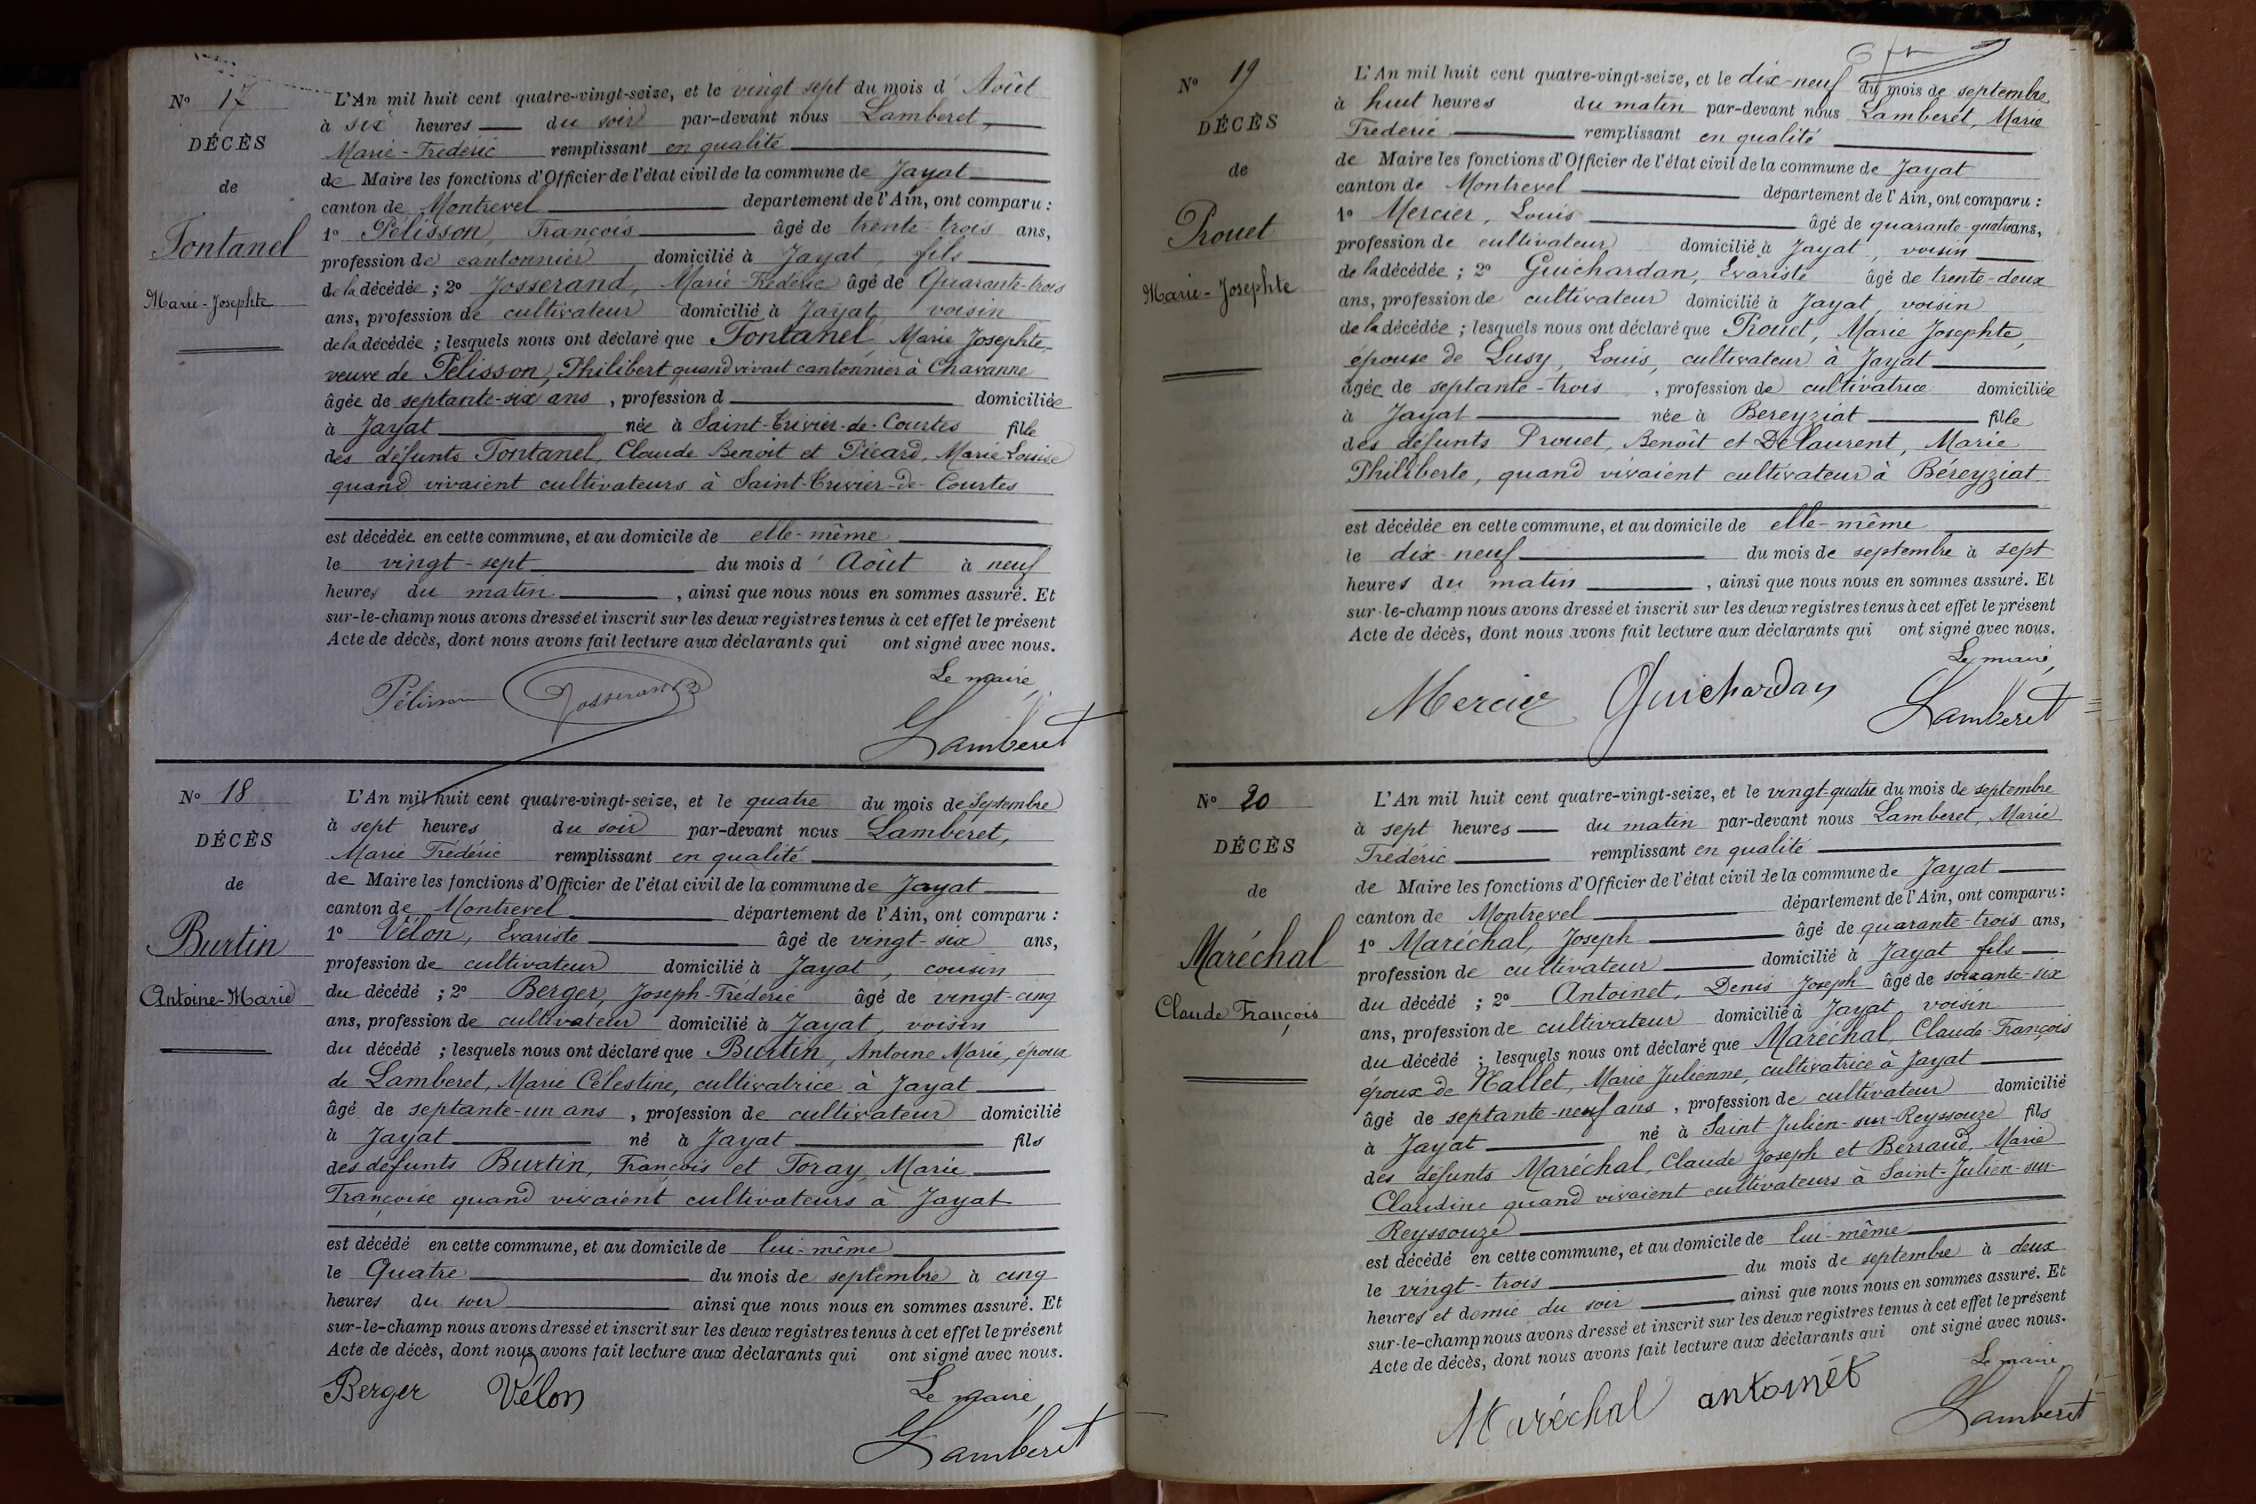 N° 17
DÉCÈS
de
Fontanel
Marie-Josephte
L'An mil huit cent quatre-vingt-seize, et le vingt sept du mois d' Août
à six heures du soir par-devant nous Lamberet,
Marie-Frédéric remplissant en qualité
de Maire les fonctions d'Officier de l'état civil de la commune de Jayat
canton de Montrevel département de l'Ain, ont comparu :
1° Pélisson, François âgé de trente-trois ans,
profession de cantonnier domicilié à Jayat, fils
de la décédée ; 2° Josserand, Marie Frédéric âgé de Quarante-trois
ans, profession de cultivateur domicilié à Jayat, voisin
de la décédée ; lesquels nous ont déclaré que Fontanel, Marie Josephte,
veuve de Pélisson, Philibert quand vivait cantonnier à Chavanne
âgée de septante-six ans, profession d domiciliée
à Jayat née à Saint-Trivier-de-Courtes fille
des défunts Fontanel, Claude Benoit et Picard, Marie Louise
quand vivaient cultivateurs à Saint-Trivier-de-Courtes
est décédée en cette commune, et au domicile de elle-même
le vingt-sept du mois d' Août à neuf
heures du matin, ainsi que nous nous en sommes assuré. Et
sur-le-champ nous avons dressé et inscrit sur les deux registres tenus à cet effet le présent
Acte de décès, dont nous avons fait lecture aux déclarants qui ont signé avec nous.
Le maire,
Pélisson Josserand
Lamberet
N° 18
DÉCÈS
de
Burtin
Antoine-Marie
L'An mil huit cent quatre-vingt-seize, et le quatre du mois de Septembre
à sept heures du soir par-devant nous Lamberet,
Marie Frédéric remplissant en qualité
de Maire les fonctions d'Officier de l'état civil de la commune de Jayat
canton de Montrevel département de l'Ain, ont comparu :
1° Vélon, Evariste âgé de vingt-six ans,
profession de cultivateur domicilié à Jayat, cousin
du décédé ; 2° Berger, Joseph-Frédéric âgé de vingt-cinq
ans, profession de cultivateur domicilié à Jayat, voisin
du décédé ; lesquels nous ont déclaré que Burtin, Antoine Marie, époux
de Lamberet, Marie Célestine, cultivatrice à Jayat
âgé de septante-un ans, profession de cultivateur domicilié
à Jayat né à Jayat fils
des défunts Burtin, François et Foray, Marie
Françoise quand vivaient cultivateurs à Jayat
est décédé en cette commune, et au domicile de lui-même
le Quatre du mois de septembre à cinq
heures du soir ainsi que nous nous en sommes assuré. Et
sur-le-champ nous avons dressé et inscrit sur les deux registres tenus à cet effet le présent
Acte de décès, dont nous avons fait lecture aux déclarants qui ont signé avec nous.
Berger Vélon Le maire,
Lamberet
N° 19
DÉCÈS
de
Prouet
Marie-Josephte
L'An mil huit cent quatre-vingt-seize, et le dix-neuf du mois de septembre
à huit heures du matin par-devant nous Lamberet, Marie
Frédéric remplissant en qualité
de Maire les fonctions d'Officier de l'état civil de la commune de Jayat
canton de Montrevel département de l'Ain, ont comparu :
1° Mercier, Louis âgé de quarante-quatre ans,
profession de cultivateur domicilié à Jayat, voisin
de la décédée ; 2° Guichardan, Evariste âgé de trente-deux
ans, profession de cultivateur domicilié à Jayat, voisin
de la décédée ; lesquels nous ont déclaré que Prouet, Marie Josephte,
épouse de Lusy, Louis, cultivateur à Jayat
âgée de septante-trois, profession de cultivatrice domiciliée
à Jayat née à Bereyziat fille
des défunts Prouet, Benoît et Delaurent, Marie
Philiberte, quand vivaient cultivateur à Béreyziat
est décédée en cette commune, et au domicile de elle-même
le dix-neuf du mois de septembre à sept
heures du matin, ainsi que nous nous en sommes assuré. Et
sur-le-champ nous avons dressé et inscrit sur les deux registres tenus à cet effet le présent
Acte de décès, dont nous avons fait lecture aux déclarants qui ont signé avec nous.
Le maire,
Mercier Guichardan Lamberet
N° 20
DÉCÈS
de
Maréchal
Claude François
L'An mil huit cent quatre-vingt-seize, et le vingt-quatre du mois de septembre
à sept heures du matin par-devant nous Lamberet, Marie
Frédéric remplissant en qualité
de Maire les fonctions d'Officier de l'état civil de la commune de Jayat
canton de Montrevel département de l'Ain, ont comparu :
1° Maréchal, Joseph âgé de quarante-trois ans,
profession de cultivateur domicilié à Jayat fils
du décédé ; 2° Antoinet, Denis Joseph âgé de soixante-six
ans, profession de cultivateur domicilié à Jayat voisin
du décédé ; lesquels nous ont déclaré que Maréchal, Claude-François
époux de Hallet, Marie Julienne, cultivatrice à Jayat
âgé de septante-neuf ans, profession de cultivateur domicilié
à Jayat né à Saint Julien-sur-Reyssouze fils
des défunts Maréchal, Claude Joseph et Berraud, Marie
Claudine quand vivaient cultivateurs à Saint-Julien-sur-
Reyssouze
est décédé en cette commune, et au domicile de lui-même
le vingt-trois du mois de septembre à deux
heures et demie du soir ainsi que nous nous en sommes assuré. Et
sur-le-champ nous avons dressé et inscrit sur les deux registres tenus à cet effet le présent
Acte de décès, dont nous avons fait lecture aux déclarants qui ont signé avec nous.
Le maire,
Maréchal antoinet
Lamberet